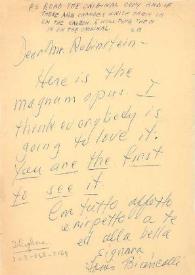 PS READ THE ORIGINAL COPY AND IF
THERE ARE CHANGES WHICH
ON THE CARBON I WILL TYPE THEM
IN ON THE ORIGINAL
Dear Mr. Rubinstein -
Here is the
magnum opus. I
think everybody is
going to love it.
You are the first
to see it.
Con tutto affetto
e rispetto a te
ed alla bella
signora
Biancolli
Telephone